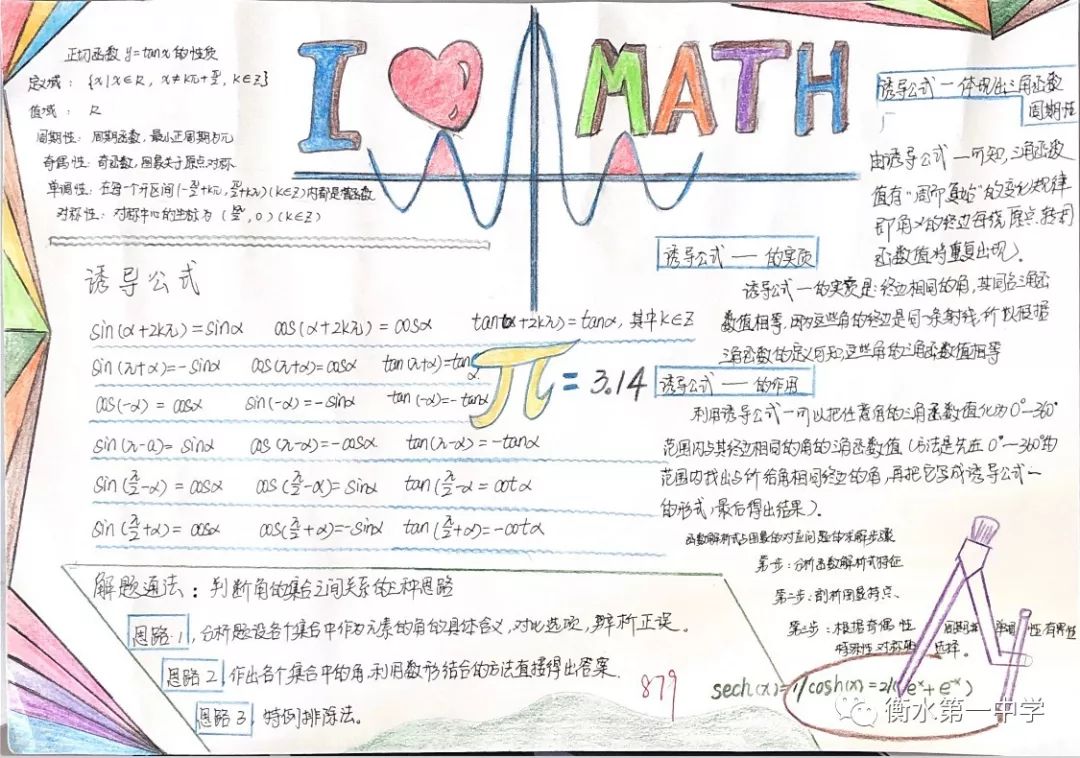 正切函数 y=tanx 的性质
定义域：{x|x∈R，x≠kπ+π/2，k∈Z}
值域：R
周期性：周期函数，最小正周期为π
奇偶性：奇函数，图象关于原点对称
单调性：在每个开区间(-π/2+kπ，π/2+kπ)(k∈Z)内都是增函数
对称性：对称中心的坐标为(kπ/2，0)(k∈Z)
I MATH
诱导公式一体现出三角函数
周期性
由诱导公式一可知，三角函数
值有"周而复始"的变化规律
即角α的终边每绕原点转一周
函数值将重复出现)。
诱导公式一的实质
诱导公式一的实质是：终边相同的角，其同名三角函
数值相等，因为这些角的终边是同一条射线，所以根据
三角函数的定义可知，这些角的三角函数值相等
诱导公式一的作用
利用诱导公式一可以把任意角的三角函数值化为0°—360°
范围内与其终边相同的角的三角函数值（方法是先在0°—360°的
范围内找出与所给角相同终边的角，再把它写成诱导公式一
的形式，最后得出结果）。
函数解析式与图象的对应问题的求解步骤
第一步：分析函数解析式特征
第二步：剖析图象特点、
第三步：根据奇偶性 周期 单调性 有界性
特殊性 对称 选择。
诱导公式
sin(α+2kπ)=sinα cos(α+2kπ)=cosα tan(α+2kπ)=tanα，其中k∈Z
sin(π+α)=-sinα cos(π+α)=cosα tan(π+α)=tanα
cos(-α)=cosα sin(-α)=-sinα tan(-α)=-tanα
π=3.14
sin(π-a)=sinα cos(π-α)=-cosα tan(π-α)=-tanα
sin(π/2-α)=cosα cos(π/2-α)=sinα tan(π/2-α=cotα
sin(π/2+α)=cosα cos(π/2+α)=-sinα tan(π/2+α)=-cotα
解题通法：判断角的集合之间关系的三种思路
思路1，分析题设各个集合中作为元素的角的具体含义，对比选项，辨析正误。
思路2 作出各个集合中的角，利用数形结合的方法直接得出答案.
思路3，特例排除法。
879
sech(x)=1/cosh(x)=2/(e^x+e^-x)
衡水第一中学